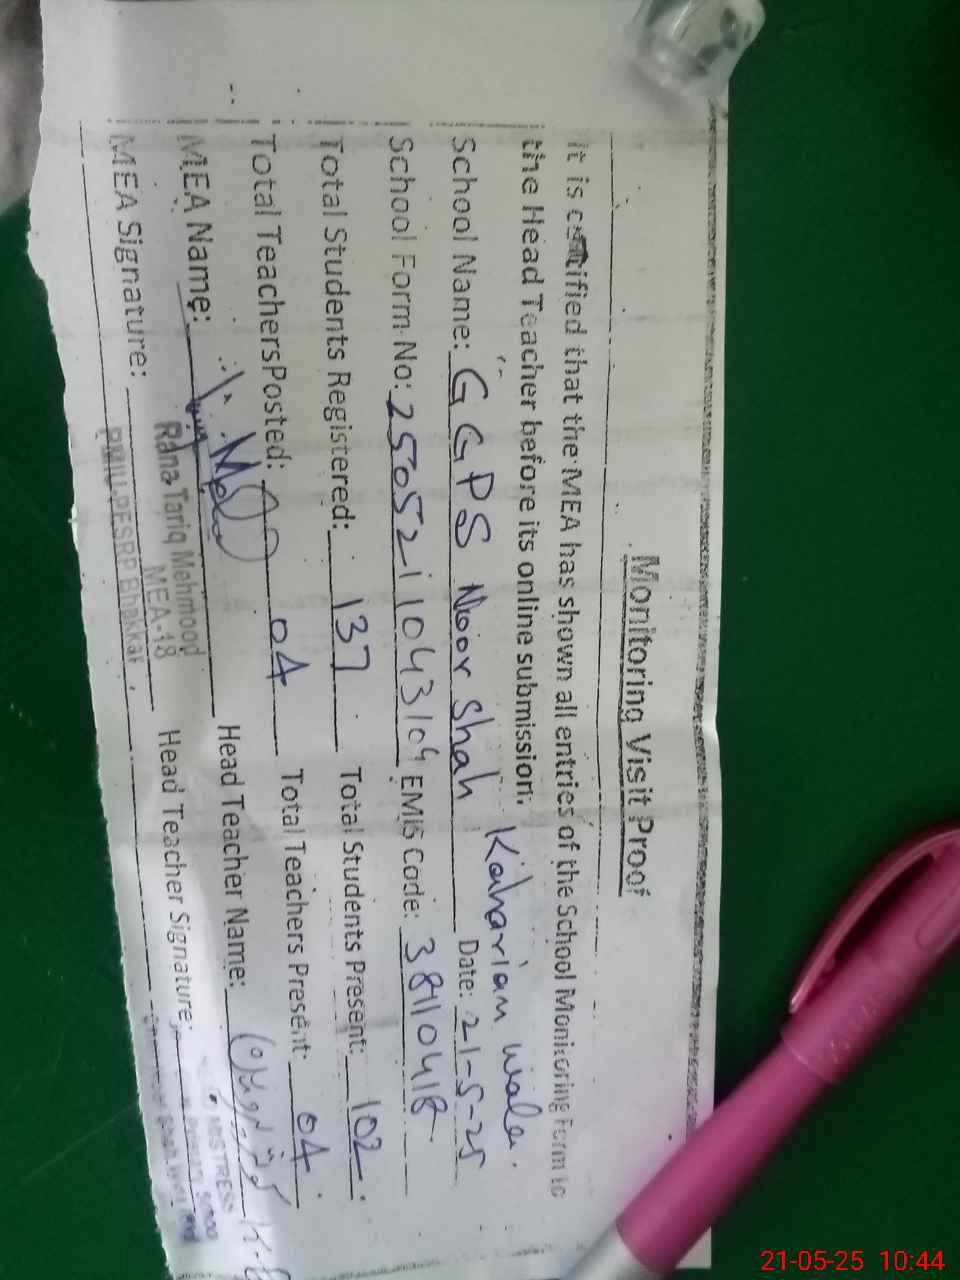 Monitoring Visit Proof
It is certified that the MEA has shown all entries of the School Monitoring Form to
the Head Teacher before its online submission.
School Name: GGPS Noor Shah Kaharian wala. Date: 21-5-25
School Form No: 2505211043109 EMIS Code: 38110418
Total Students Registered: 137 Total Students Present: 102
Total TeachersPosted: 04 Total Teachers Present: 04
MEA Name: Head Teacher Name:
Rana Tariq Mehmood
MEA-18
PMIU-PESRP Bhakkar
MEA Signature: Head Teacher Signature:
MISTRESS
21-05-25 10:44